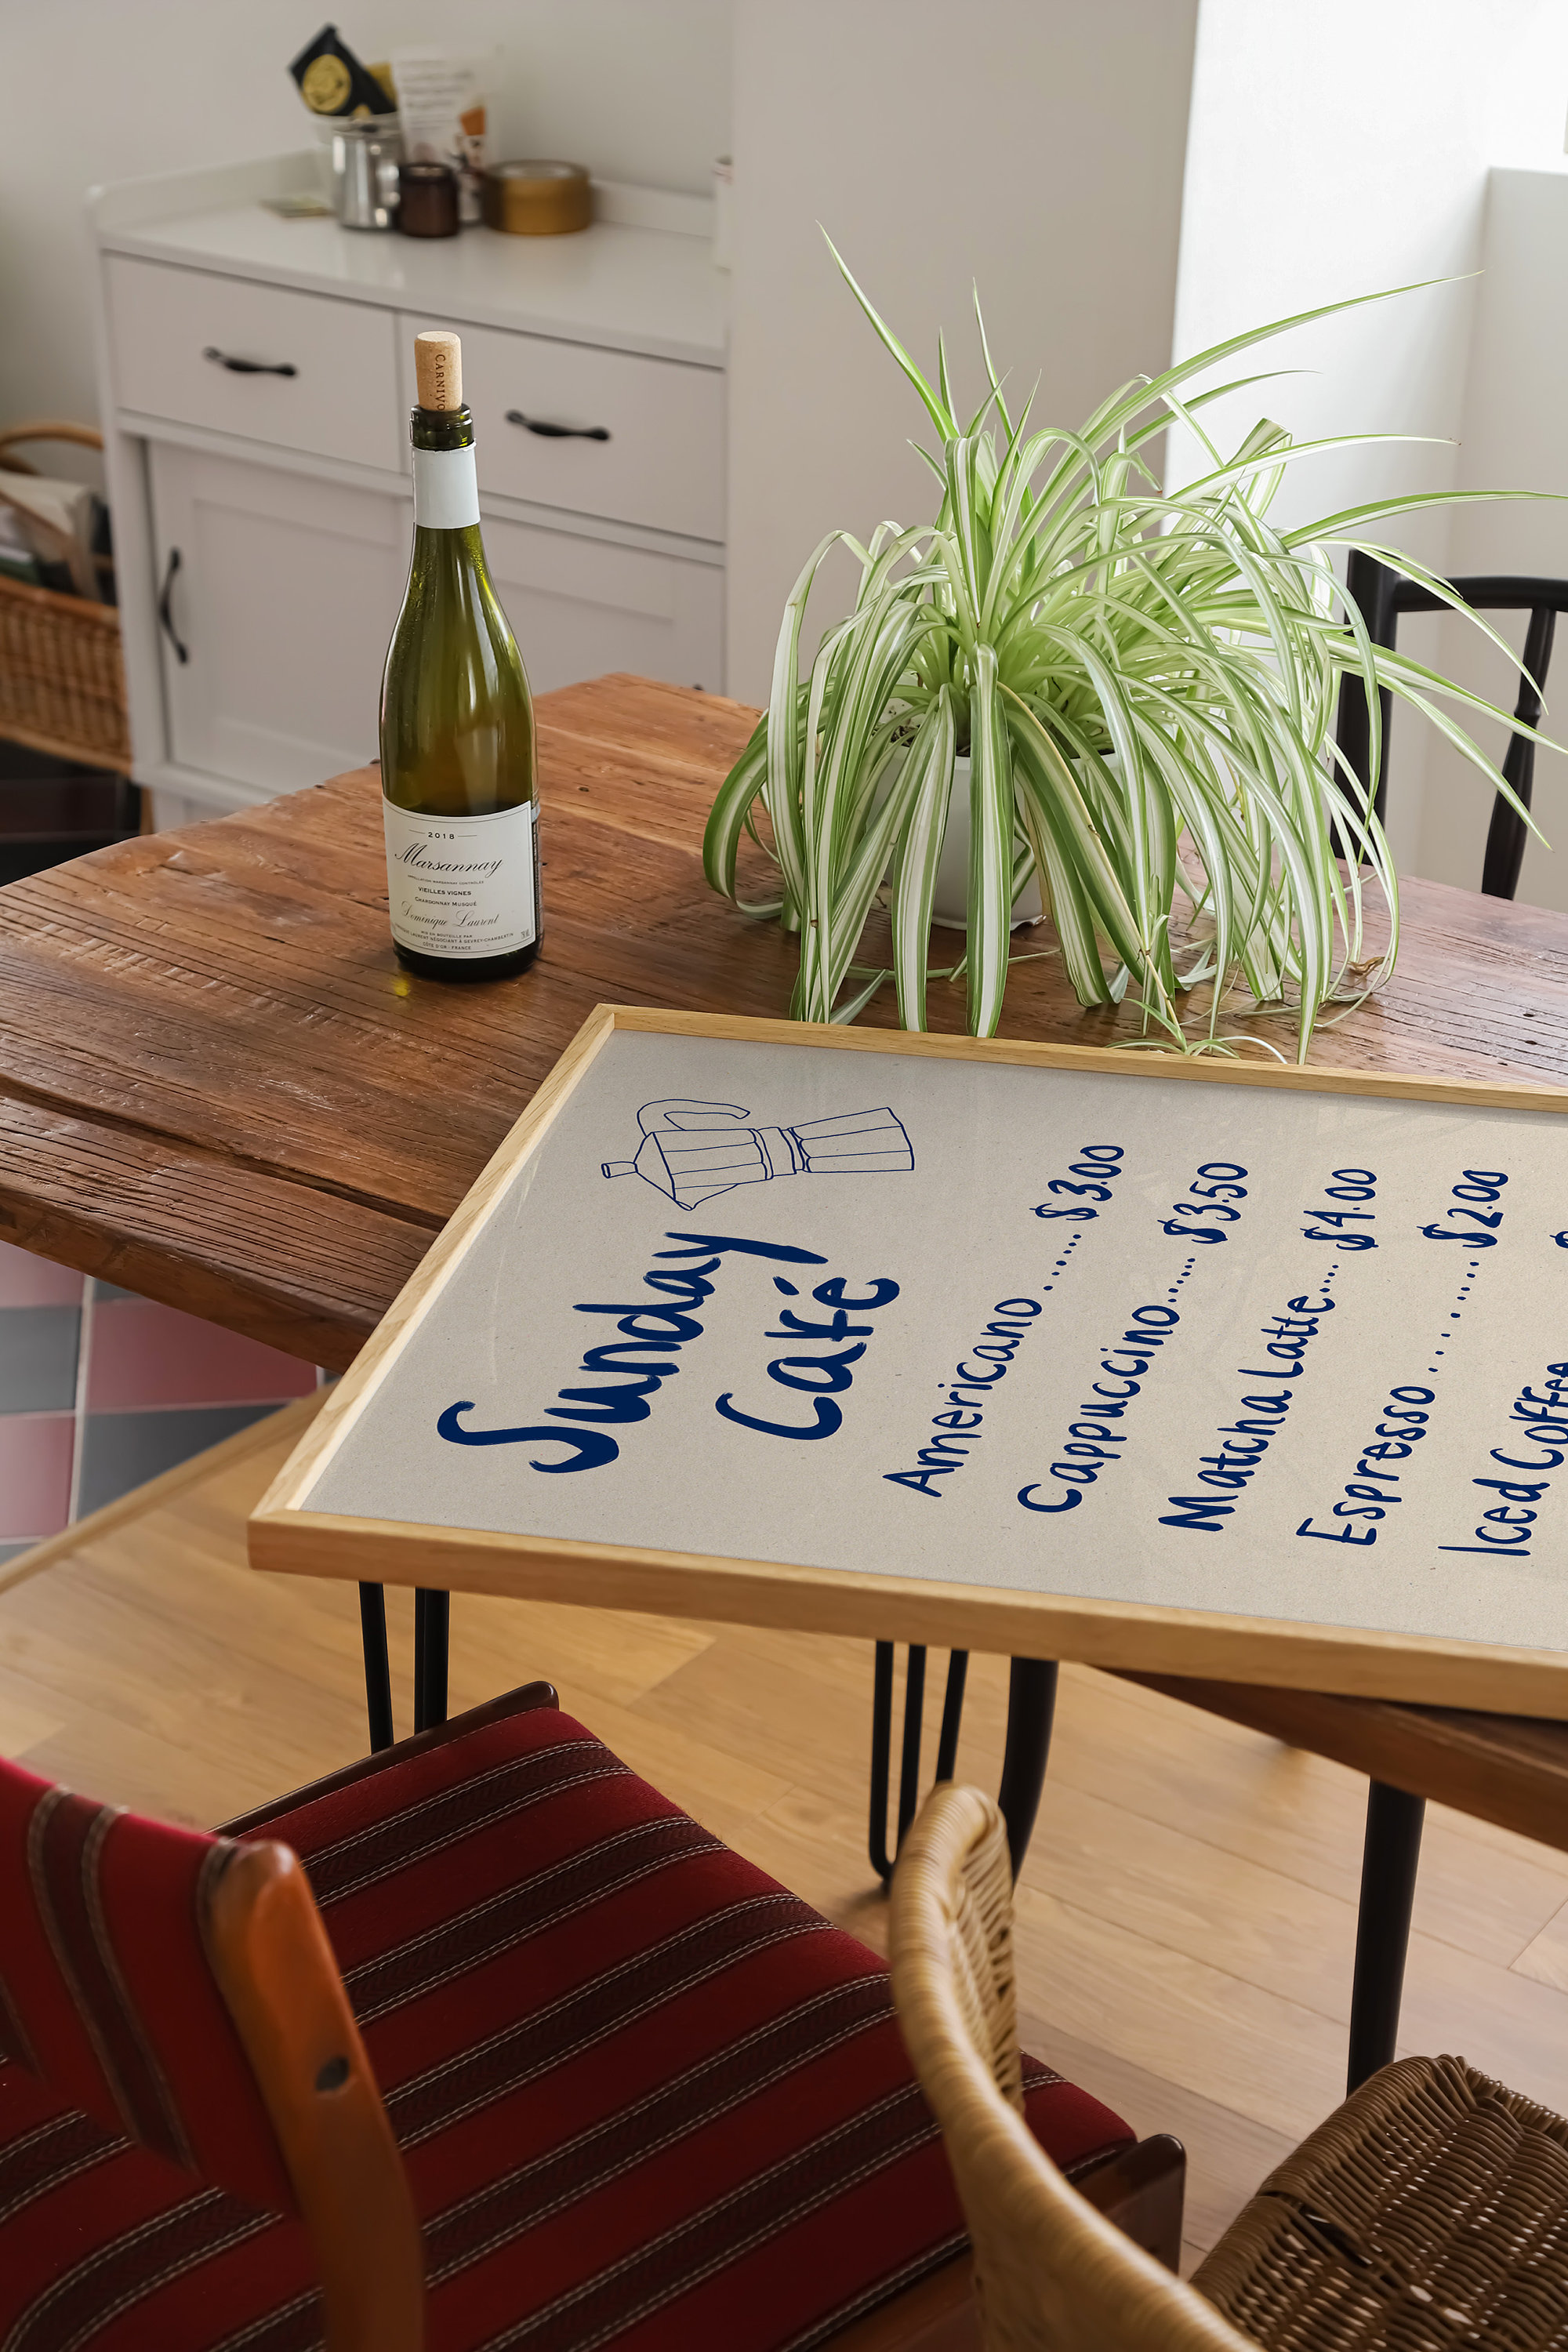 CARNIVO
2018
Marsannay
APPELLATION MARSANNAY CONTRÔLÉE
VIEILLES VIGNES
CHARDONNAY MUSQUÉ
Dominique Laurent
MIS EN BOUTEILLE PAR
LAURENT NÉGOCIANT À GEVREY-CHAMBERTIN
CÔTE D'OR - FRANCE
Sunday
Café
Americano ...... $3.00
Cappuccino...... $3.50
Matcha Latte.... $4.00
Espresso ......... $2.00
Iced Coffee $